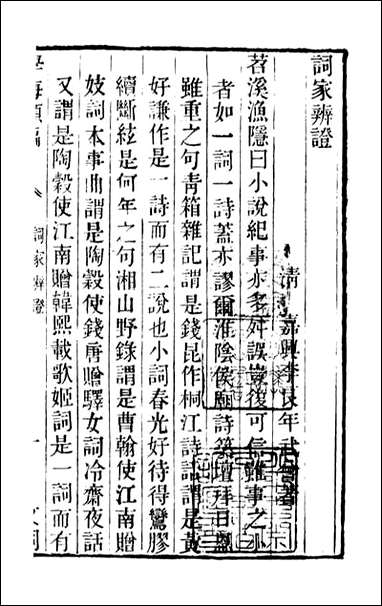 詞家辨證
清 嘉興李良年武曾著
苕溪漁隱曰小說紀事亦多舛誤豈復可信雖事之小
者如一詞一詩蓋亦謬爾淮陰侯廟詩築壇拜日恩
雖重之句青箱雜記謂是錢昆作桐江詩話謂是黃
好謙作是一詩而有二說也小詞春光好待得鸞膠
續斷絃是何年之句湘山野錄謂是曹翰使江南贈
妓詞本事曲謂是陶穀使錢唐贈驛女詞冷齋夜話
又謂是陶穀使江南贈韓熙載歌姬詞是一詞而有
學海類編 詞家辨證 一